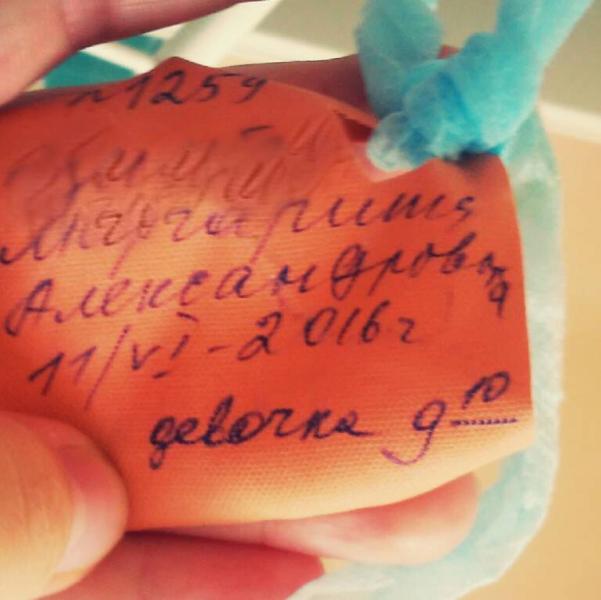 1259
Маргарита
Александровна
11/VI-2016г
девочка 9 10